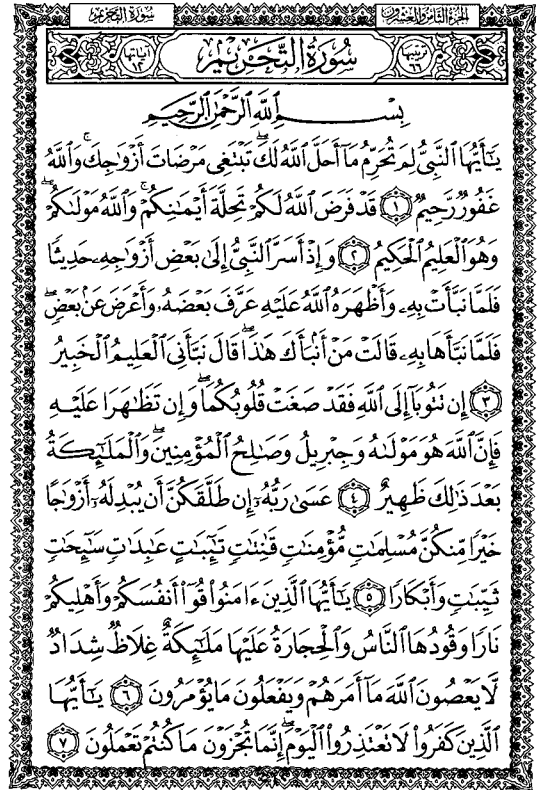 الجزء الثامن والعشرون
سورة التحريم
ترتيبها ٦٦
سُورَةُ التَّحْرِيمِ
آياتها ١٢
بِسْمِ اللَّهِ الرَّحْمَٰنِ الرَّحِيمِ
يَٰٓأَيُّهَا ٱلنَّبِيُّ لِمَ تُحَرِّمُ مَآ أَحَلَّ ٱللَّهُ لَكَۖ تَبْتَغِى مَرْضَاتَ أَزْوَٰجِكَۚ وَٱللَّهُ
غَفُورٌ رَّحِيمٌ ١ قَدْ فَرَضَ ٱللَّهُ لَكُمْ تَحِلَّةَ أَيْمَٰنِكُمْۚ وَٱللَّهُ مَوْلَىٰكُمْۖ
وَهُوَ ٱلْعَلِيمُ ٱلْحَكِيمُ ٢ وَإِذْ أَسَرَّ ٱلنَّبِيُّ إِلَىٰ بَعْضِ أَزْوَٰجِهِۦ حَدِيثًا
فَلَمَّا نَبَّأَتْ بِهِۦ وَأَظْهَرَهُ ٱللَّهُ عَلَيْهِ عَرَّفَ بَعْضَهُۥ وَأَعْرَضَ عَنۢ بَعْضٍۖ
فَلَمَّا نَبَّأَهَا بِهِۦ قَالَتْ مَنْ أَنۢبَأَكَ هَٰذَاۖ قَالَ نَبَّأَنِىَ ٱلْعَلِيمُ ٱلْخَبِيرُ
٣ إِن تَتُوبَآ إِلَى ٱللَّهِ فَقَدْ صَغَتْ قُلُوبُكُمَاۖ وَإِن تَظَٰهَرَا عَلَيْهِ
فَإِنَّ ٱللَّهَ هُوَ مَوْلَىٰهُ وَجِبْرِيلُ وَصَٰلِحُ ٱلْمُؤْمِنِينَۖ وَٱلْمَلَٰٓئِكَةُ
بَعْدَ ذَٰلِكَ ظَهِيرٌ ٤ عَسَىٰ رَبُّهُۥٓ إِن طَلَّقَكُنَّ أَن يُبْدِلَهُۥٓ أَزْوَٰجًا
خَيْرًا مِّنكُنَّ مُسْلِمَٰتٍ مُّؤْمِنَٰتٍ قَٰنِتَٰتٍ تَٰٓئِبَٰتٍ عَٰبِدَٰتٍ سَٰٓئِحَٰتٍ
ثَيِّبَٰتٍ وَأَبْكَارًا ٥ يَٰٓأَيُّهَا ٱلَّذِينَ ءَامَنُوا۟ قُوٓا۟ أَنفُسَكُمْ وَأَهْلِيكُمْ
نَارًا وَقُودُهَا ٱلنَّاسُ وَٱلْحِجَارَةُ عَلَيْهَا مَلَٰٓئِكَةٌ غِلَاظٌ شِدَادٌ
لَّا يَعْصُونَ ٱللَّهَ مَآ أَمَرَهُمْ وَيَفْعَلُونَ مَا يُؤْمَرُونَ ٦ يَٰٓأَيُّهَا
ٱلَّذِينَ كَفَرُوا۟ لَا تَعْتَذِرُوا۟ ٱلْيَوْمَۖ إِنَّمَا تُجْزَوْنَ مَا كُنتُمْ تَعْمَلُونَ ٧